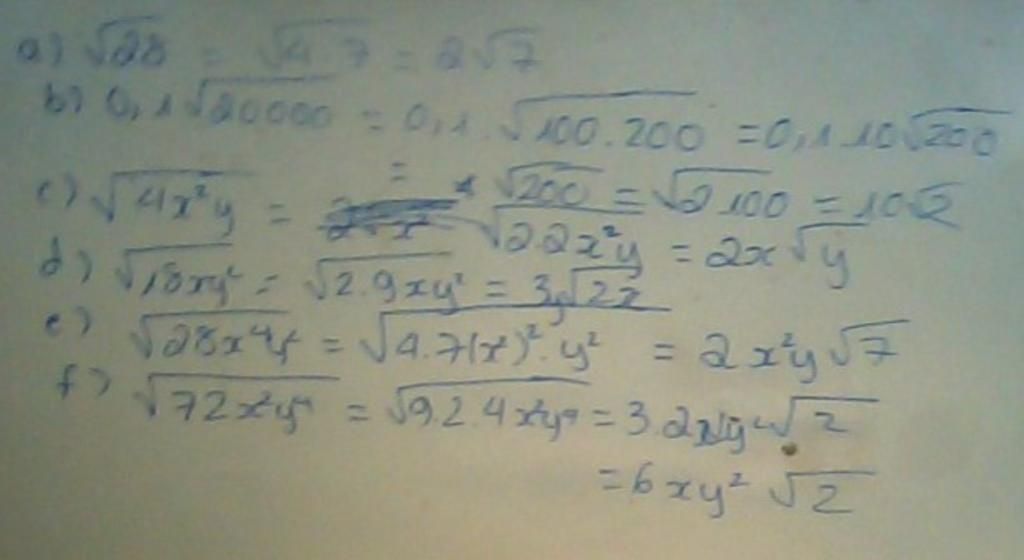 a) √28 = √4.7 = 2√7
b) 0,1√20000 = 0,1.√100.200 = 0,1.10√200
= √200 = √2.100 = 10√2
c) √4x²y = √2.2x²y = 2x√y
d) √18xy² = √2.9xy² = 3y√2x
e) √28x⁴y² = √4.7(x²)².y² = 2x²y√7
f) √72x²y⁴ = √9.2.4x²y⁴ = 3.2xy²√2
= 6xy²√2